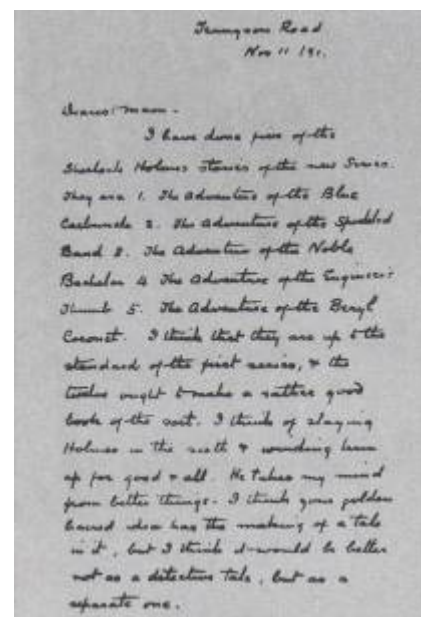 Tennyson Road
Nov 11 /91.
Dearest Mam -
I have done five of the
Sherlock Holmes stories of the new Series.
They are 1. The Adventure of the Blue
Carbuncle 2. The Adventure of the Speckled
Band 3. The Adventure of the Noble
Bachelor 4 The Adventure of the Engineer's
Thumb 5. The Adventure of the Beryl
Coronet. I think that they are up to the
standard of the first series, & the
twelve ought to make a rather good
book of the sort. I think of slaying
Holmes in the sixth & winding him
up for good & all. He takes my mind
from better things. I think your golden
haired idea has the making of a tale
in it, but I think it would be better
not as a detective tale, but as a
separate one.